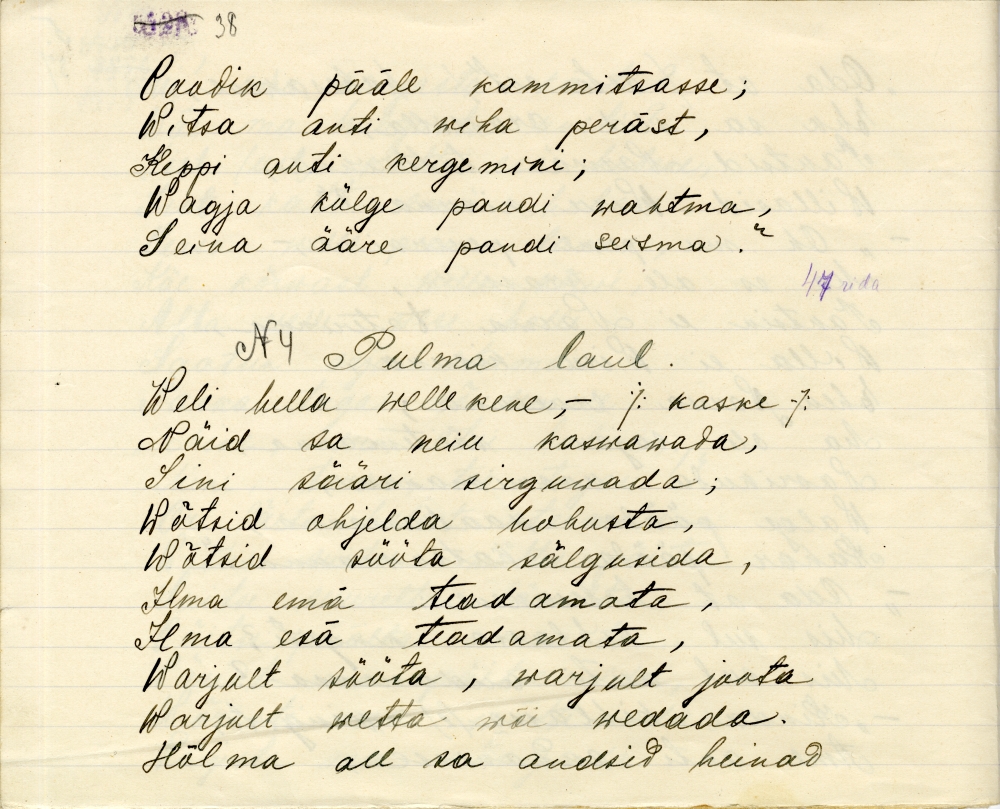 38
Paadik pääle kammitsasse;
Witsa anti wiha peräst,
Keppi anti kergemini;
Wagja külge pandi wahtma,
Seina ääre pandi seisma."
47 rida
N 4 Pulma laul.
Weli hella wellekene, – ⁒ kaske ⁒
Näid sa neiu kaswawada,
Sini sääri sirguwada;
Wõtsid ohjelda hobusta,
Wõtsid sööta sälgusida,
Ilma emä teadamata,
Ilma esä teadamata,
Warjult sööta, warjult joota
Warjult wetta wõi wedada.
Hõlma all sa andsid heinad